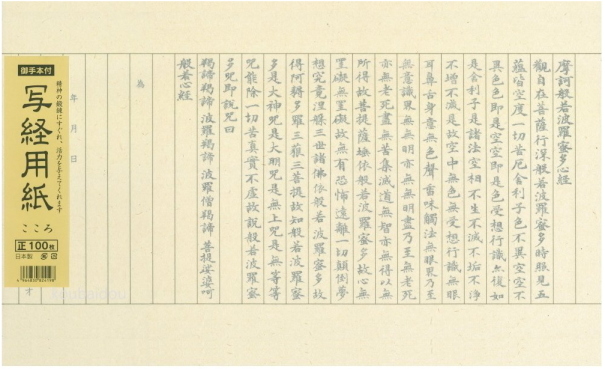 摩訶般若波羅蜜多心経
觀自在菩薩行深般若波羅蜜多時照見五
蘊皆空度一切苦厄舎利子色不異空空不
異色色即是空空即是色受想行識亦復如
是舎利子是諸法空相不生不滅不垢不浄
不増不減是故空中無色無受想行識無眼
耳鼻舌身意無色聲香味觸法無眼界乃至
無意識界無無明亦無無明盡乃至無老死
亦無老死盡無苦集滅道無智亦無得以無
所得故菩提薩埵依般若波羅蜜多故心無
罣礙無罣礙故無有恐怖遠離一切顛倒夢
想究竟涅槃三世諸佛依般若波羅蜜多故
得阿耨多羅三藐三菩提故知般若波羅蜜
多是大神咒是大明咒是無上咒是無等等
咒能除一切苦真實不虚故説般若波羅蜜
多咒即説咒曰
羯諦羯諦 波羅羯諦 波羅僧羯諦 菩提娑婆訶
般若心経
為
年 月 日
御手本付
精神の鍛練にすぐれ、活力を与えてくれます
写経用紙
こころ
正100枚
日本製